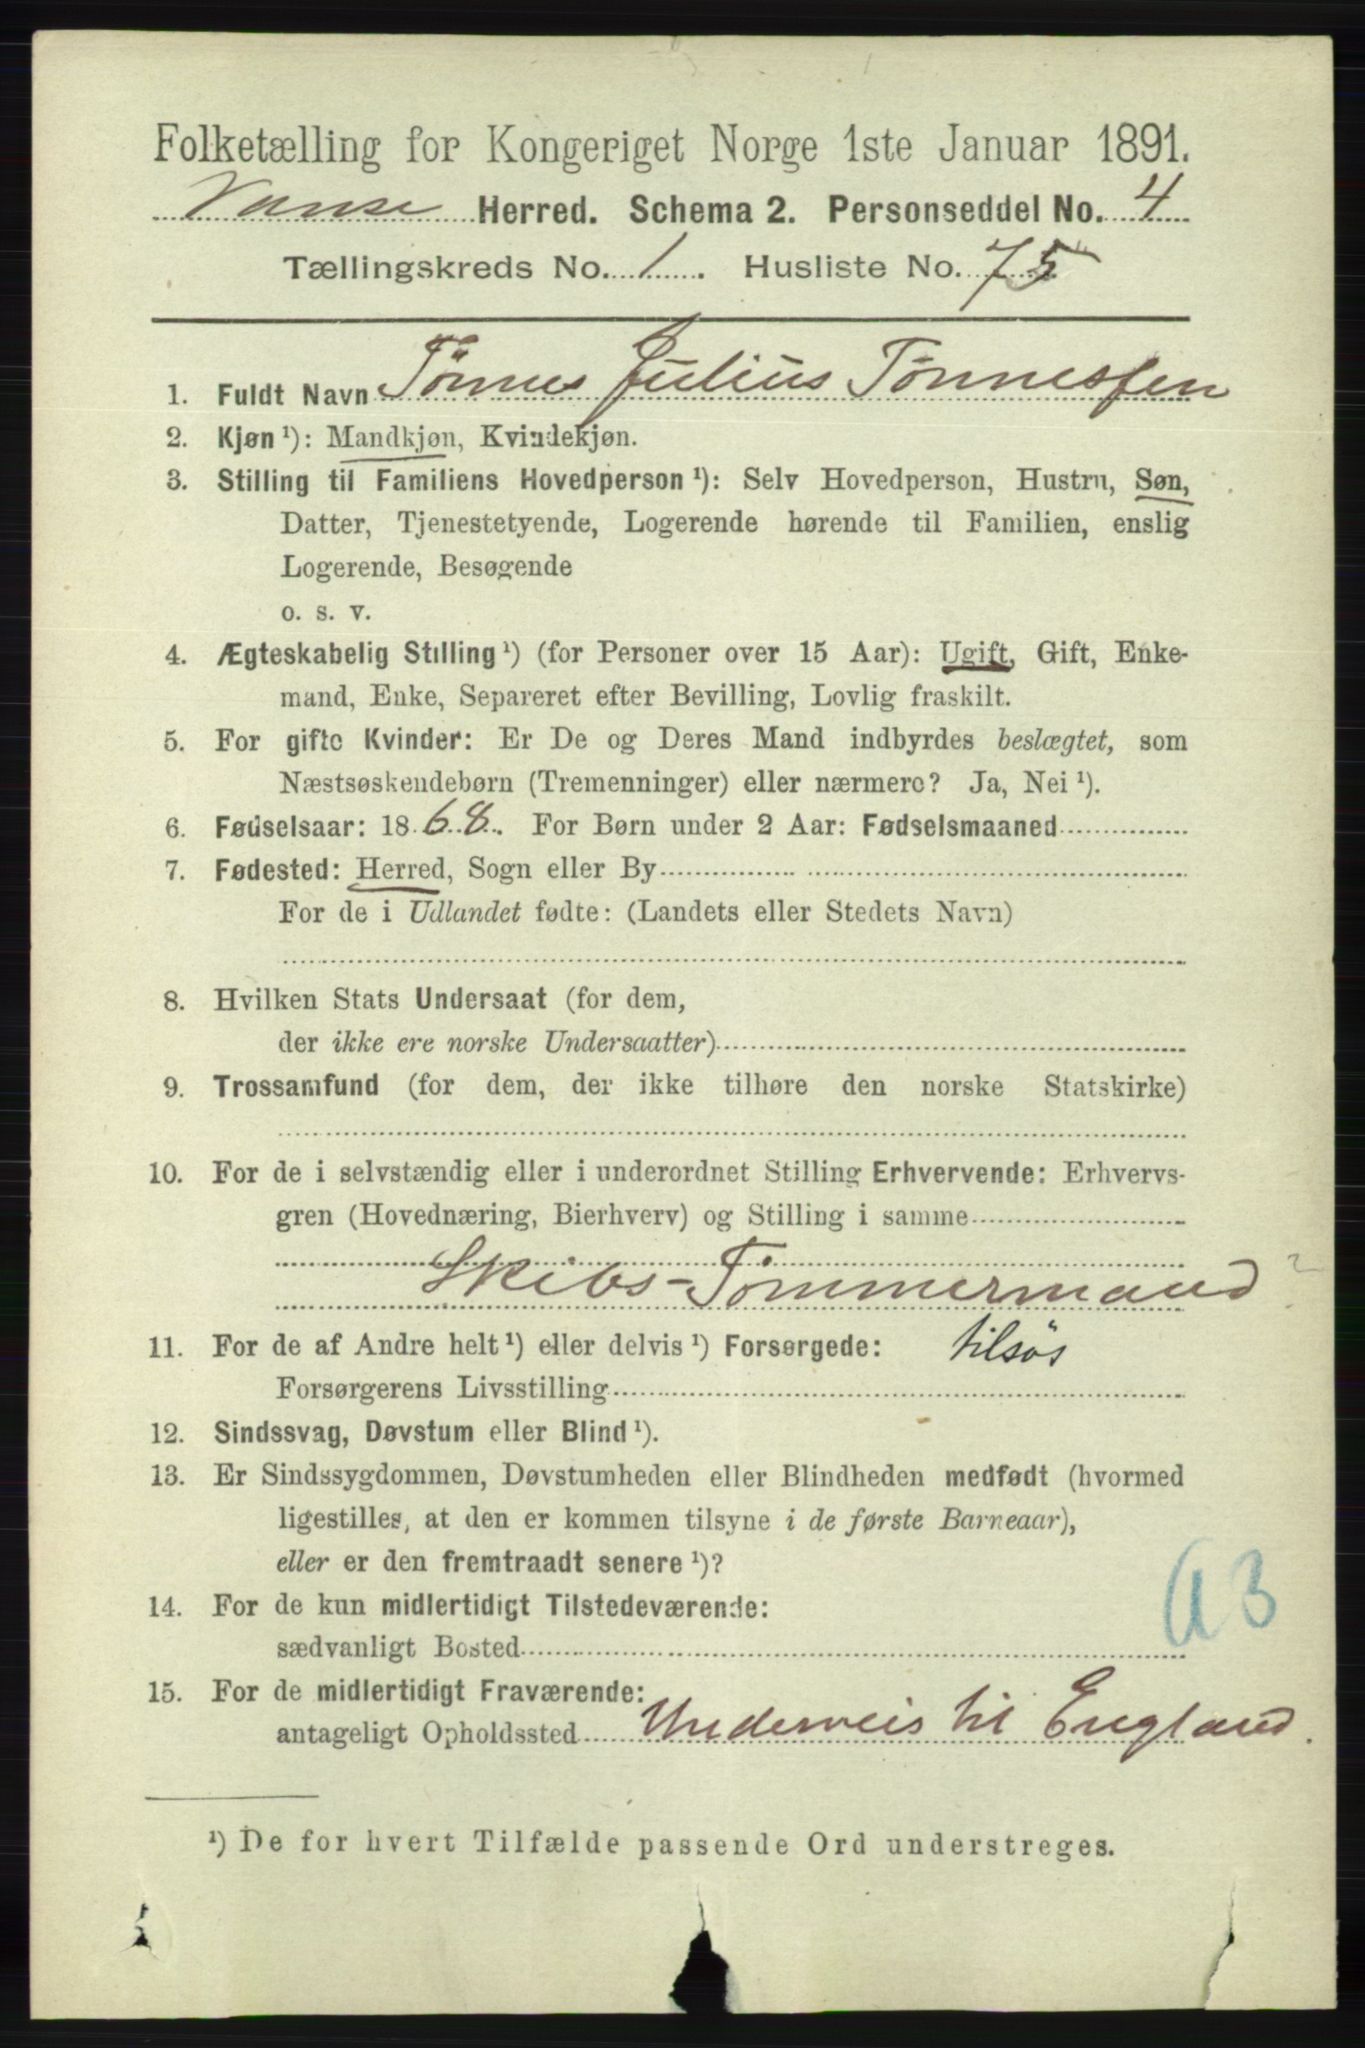 Folketælling for Kongeriget Norge 1ste Januar 1891.
Vanse Herred. Schema 2. Personseddel No. 4
Tællingskreds No. 1. Husliste No. 75
1. Fuldt Navn Tønnes Julius Tønnessen
2. Kjøn ¹): Mandkjøn, Kvindekjøn.
3. Stilling til Familiens Hovedperson ¹): Selv Hovedperson, Hustru, Søn,
Datter, Tjenestetyende, Logerende hørende til Familien, enslig
Logerende, Besøgende
o. s. v.
4. Ægteskabelig Stilling ¹) (for Personer over 15 Aar): Ugift, Gift, Enke-
mand, Enke, Separeret efter Bevilling, Lovlig fraskilt.
5. For gifte Kvinder: Er De og Deres Mand indbyrdes beslægtet, som
Næstsøskendebørn (Tremenninger) eller nærmere? Ja, Nei ¹).
6. Fødselsaar: 1868. For Børn under 2 Aar: Fødselsmaaned
7. Fødested: Herred, Sogn eller By
For de i Udlandet fødte: (Landets eller Stedets Navn)
8. Hvilken Stats Undersaat (for dem,
der ikke ere norske Undersaatter)
9. Trossamfund (for dem, der ikke tilhøre den norske Statskirke)
10. For de i selvstændig eller i underordnet Stilling Erhvervende: Erhvervs-
gren (Hovednæring, Bierhverv) og Stilling i samme
Skibs-Tømmermand ?
11. For de af Andre helt ¹) eller delvis ¹) Forsørgede: tilsøs
Forsørgerens Livsstilling
12. Sindssvag, Døvstum eller Blind ¹).
13. Er Sindssygdommen, Døvstumheden eller Blindheden medfødt (hvormed
ligestilles, at den er kommen tilsyne i de første Barneaar),
eller er den fremtraadt senere ¹)?
14. For de kun midlertidigt Tilstedeværende:
sædvanligt Bosted
a 3
15. For de midlertidigt Fraværende:
antageligt Opholdssted Underveis til England.
¹) De for hvert Tilfælde passende Ord understreges.